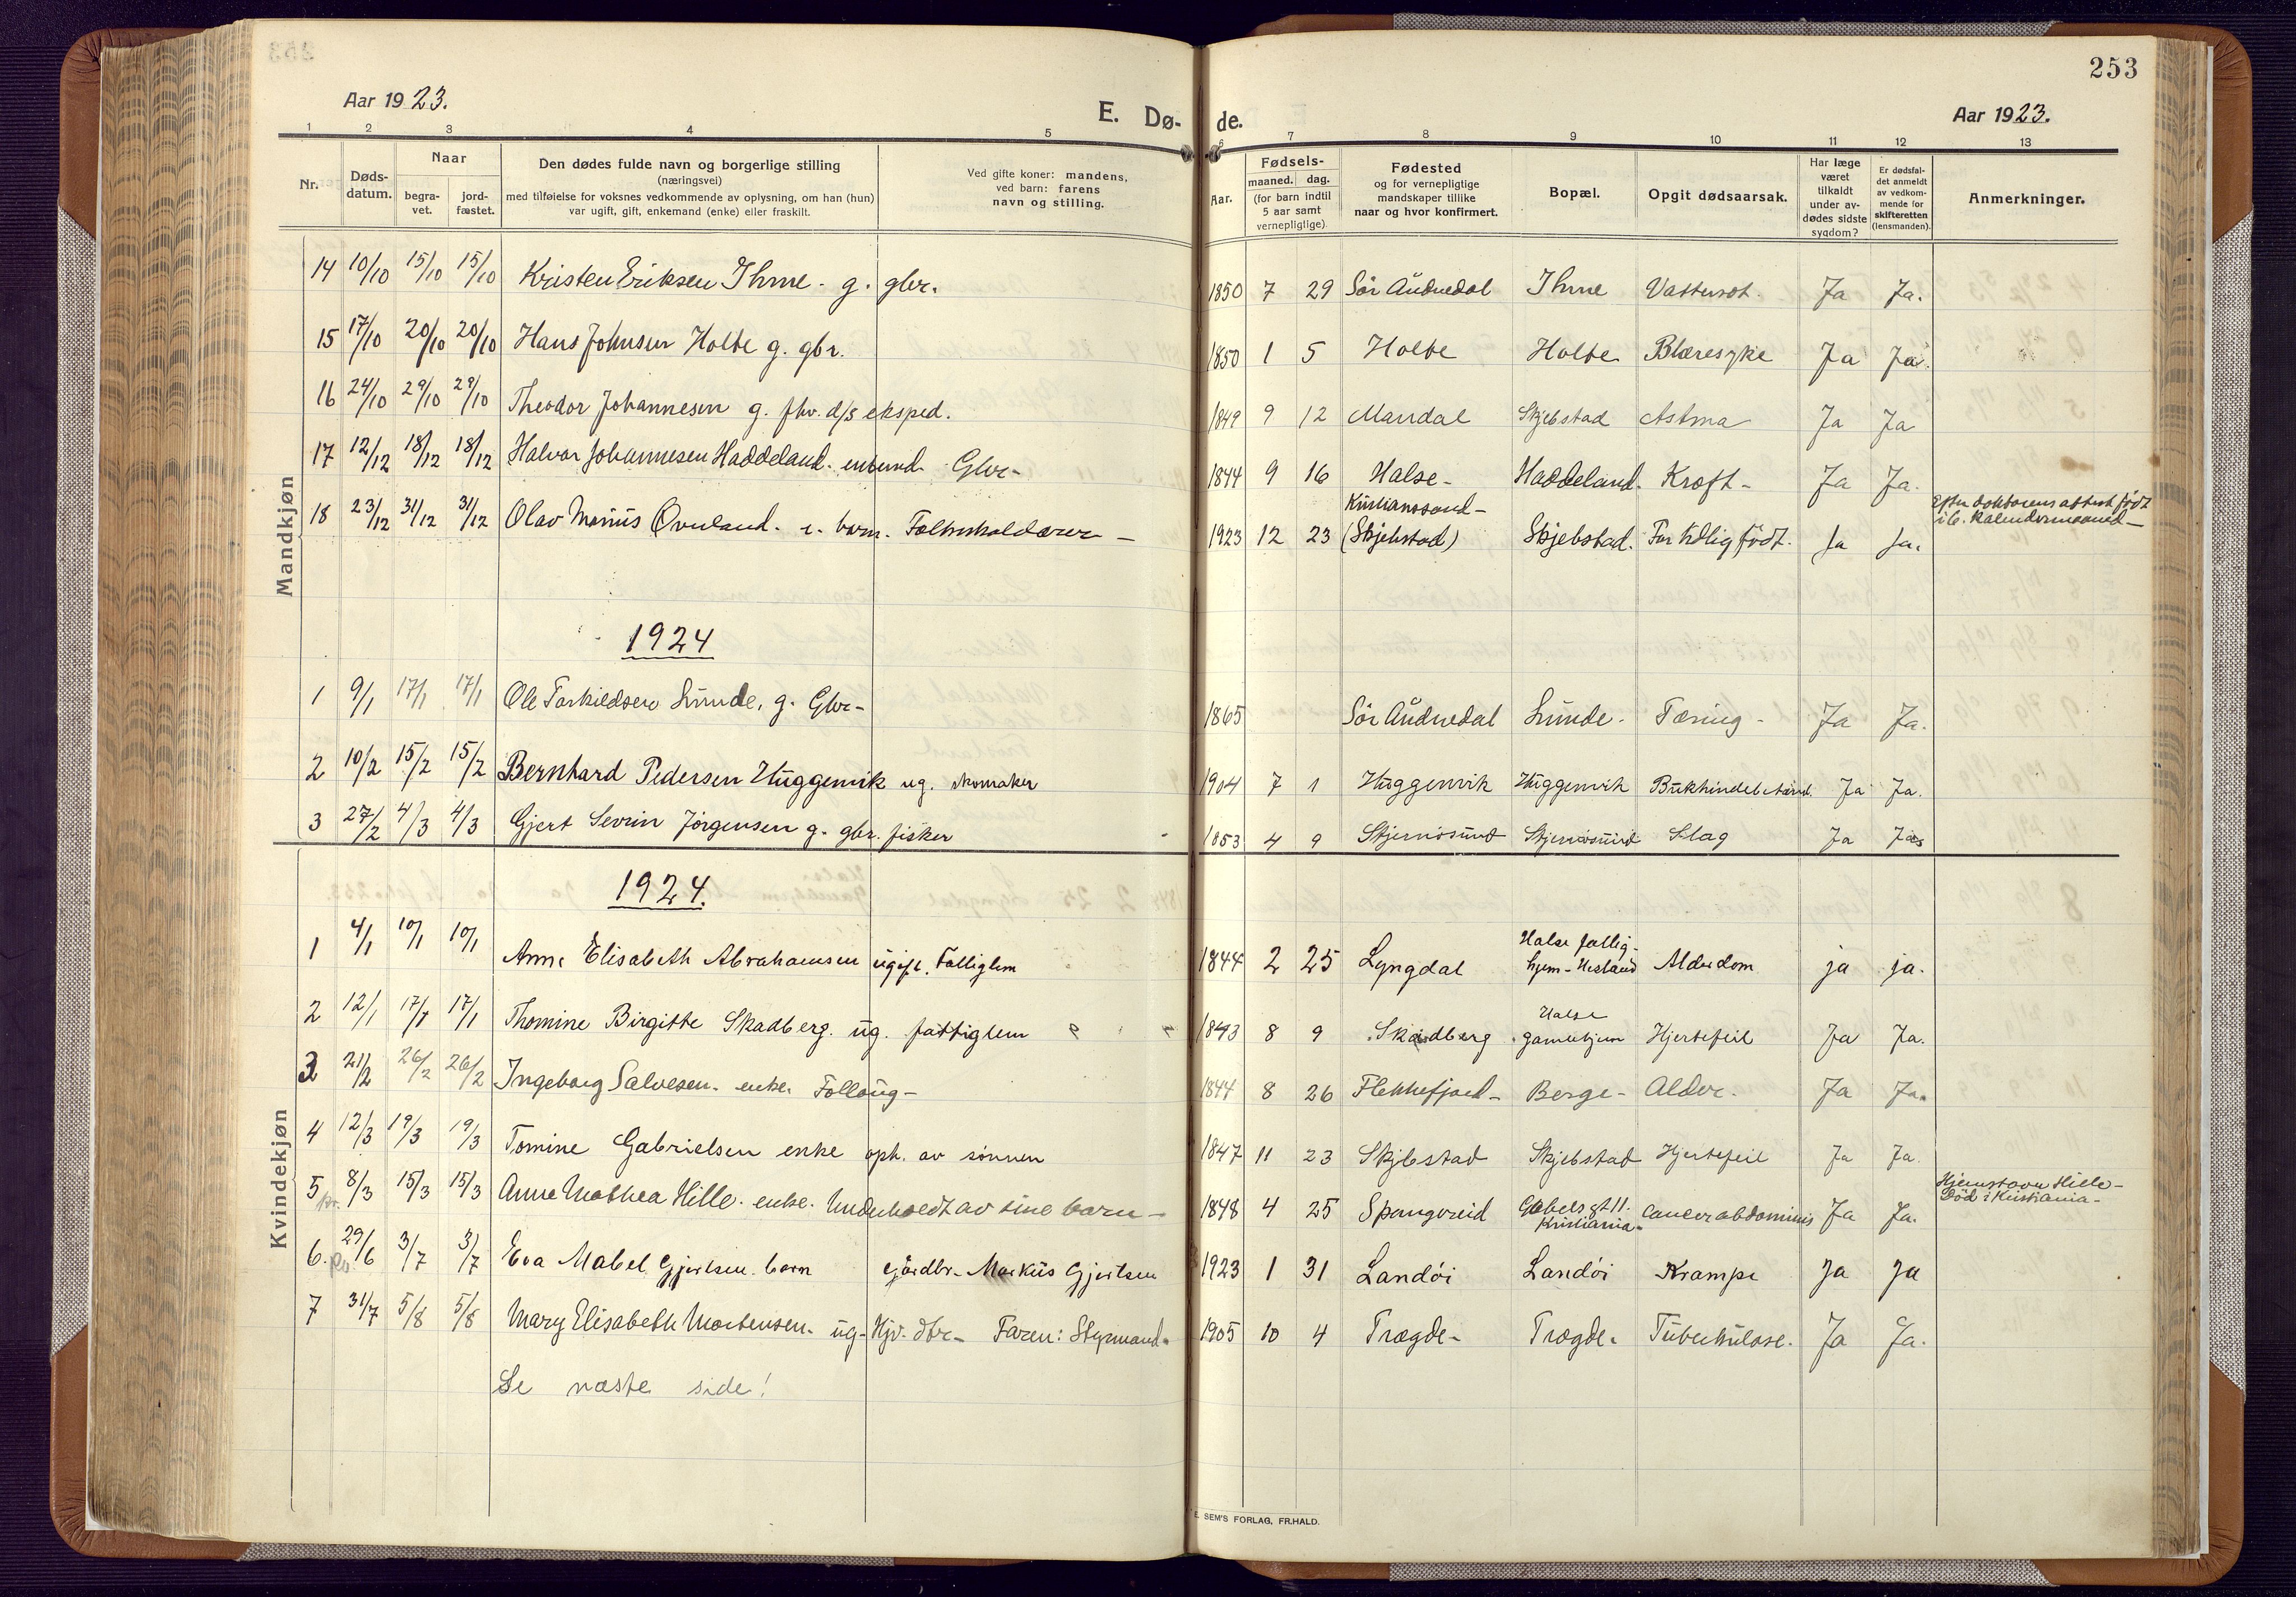 253
Aar 1923.
E. Dø-
de.
Aar 1923.
1 2 3 4 5 6 7 8 9 10 11 12 13
Nr.
Døds-
datum.
Naar
begra-
vet.
jord-
fæstet.
Den dødes fulde navn og borgerlige stilling
(næringsvei)
med tilføielse for voksnes vedkommende av oplysning, om han (hun)
var ugift, gift, enkemand (enke) eller fraskilt.
Ved gifte koner: mandens,
ved barn: farens
navn og stilling.
Aar.
Fødsels-
maaned. dag.
(for barn indtil
5 aar samt
vernepligtige).
Fødested
og for vernepligtige
mandskaper tillike
naar og hvor konfirmert.
Bopæl.
Opgit dødsaarsak.
Har læge
været
tilkaldt
under av-
dødes sidste
sygdom?
Er dødsfal-
det anmeldt
av vedkom-
mende for
skifteretten
(lensmanden).
Anmerkninger.
Mandkjøn
14 10/10 15/10 15/10 Kristen Eriksen Ihme - g. gbr. 1850 7 29 Sör Audnedal Ihme Vattersot. Ja Ja.
15 17/10 20/10 20/10 Hans Johnsen Holte g. gbr. 1850 1 5 Holte Holte Blæresyke Ja Ja.
16 24/10 29/10 29/10 Theodor Johannesen g. fhv. d/s eksped. 1849 9 12 Mandal Skjebstad Astma Ja Ja
17 12/12 18/12 18/12 Halvor Johannesen Haddeland - enkemd. Gbr- 1844 9 16 Halse- Haddeland. Kræft- Ja Ja.
Kristianssand-
Efter doktorens attest født
i 6. kalendermaaned-
18 23/12 31/12 31/12 Olav Marius Øvrland - u. barn. 1923 12 23 (Skjebstad) Skjebstad. For tidlig født. Ja Ja.
1924
1 9/1 17/1 17/1 Ole Torkildsen Lunde, g. Gbr- 1865 Sör Audnedal Lunde- Tæring- Ja Ja.
2 10/2 15/2 15/2 Bernhard Pedersen Huggenvik ug. skomaker 1904 7 1 Huggenvik Huggenvik Bukhindebetænd. Ja Ja.
3 27/2 4/3 4/3 Gjert Sevrin Jörgensen g. gbr. fisker 1853 4 9 Skjernösund Skjernösund Slag Ja Ja
Kvindekjøn
1924.
Halse fattig-
1 4/1 10/1 10/1 Anne Elisabeth Abrahamsen ugift. Fattiglem 1844 2 25 Lyngdal hjem- Alderdom ja ja.
Halse
2 12/1 17/1 17/1 Thomine Birgitte Skadberg. ug. fattiglem 1843 8 9 Skadberg gamlehjem Hjertefeil Ja Ja.
3 21/2 26/2 26/2 Ingeborg Salvesen - enke. Follaug- 1844 8 26 Flekkefjord- Berge- Alder. Ja Ja.
4 12/3 19/3 19/3 Tomine Gabrielsen enke oph. av sönnen 1847 11 23 Skjebstad Skjebstad Hjertefeil Ja Ja.
Hjemstavn Hille-
Död i Kristiania-
5 8/3 15/3 15/3 Anne Mathea Hille - enke. Underholdt av sine barn- 1848 4 25 Spangereid Gabels gt 11. Cancer abdominis Ja Ja.
Kristiania.
6. 29/6 3/7 3/7 Eva Mabel Gjertsen barn Gårdbr- Markus Gjertsen 1923 1 31 Landöi Landöi Krampe Ja Ja
7 31/7 5/8 5/8 Mary Elisabeth Mortensen - ug- Hjv. dtr- Faren: Styrmand- 1905 10 4 Trægde- Trægde. Tuberkulose. Ja Ja.
Se næste side!
E. SEM'S FORLAG, FR.HALD.